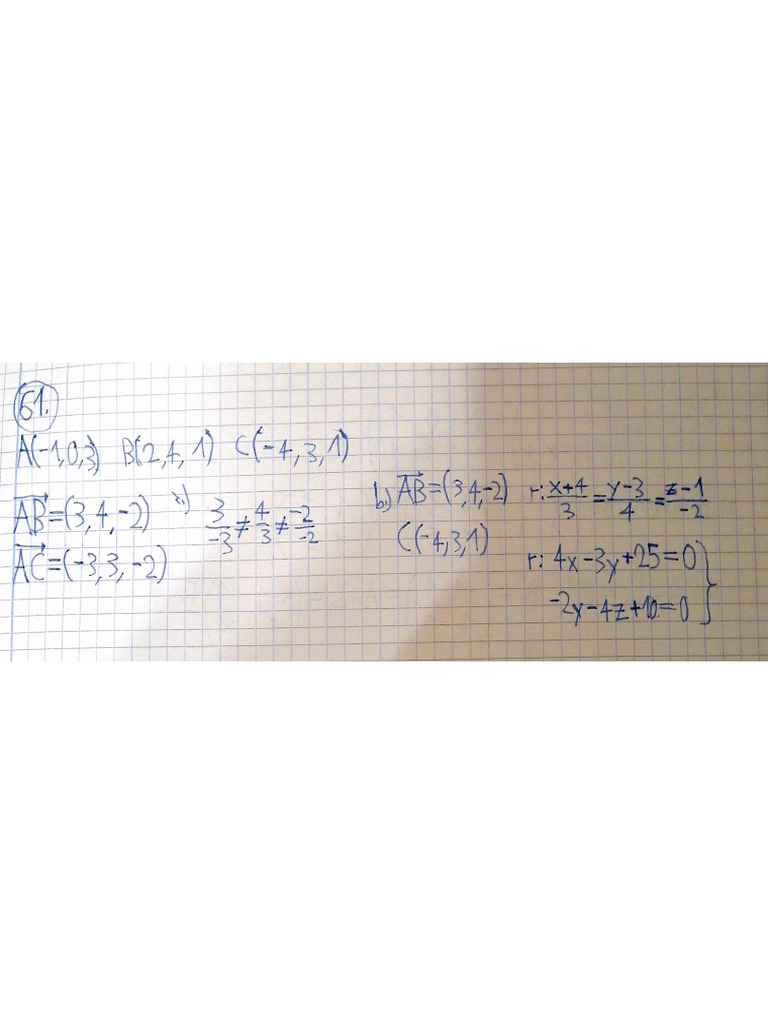 61.
A(-1,0,3) B(2,4,1) C(-4,3,1)
AB=(3,4,-2) a) 3/-3≠4/3≠-2/-2
AC=(-3,3,-2)
b) AB=(3,4,-2) r: x+4/3=y-3/4=z-1/-2
C(-4,3,1)
r: 4x-3y+25=0
-2y-4z+10=0